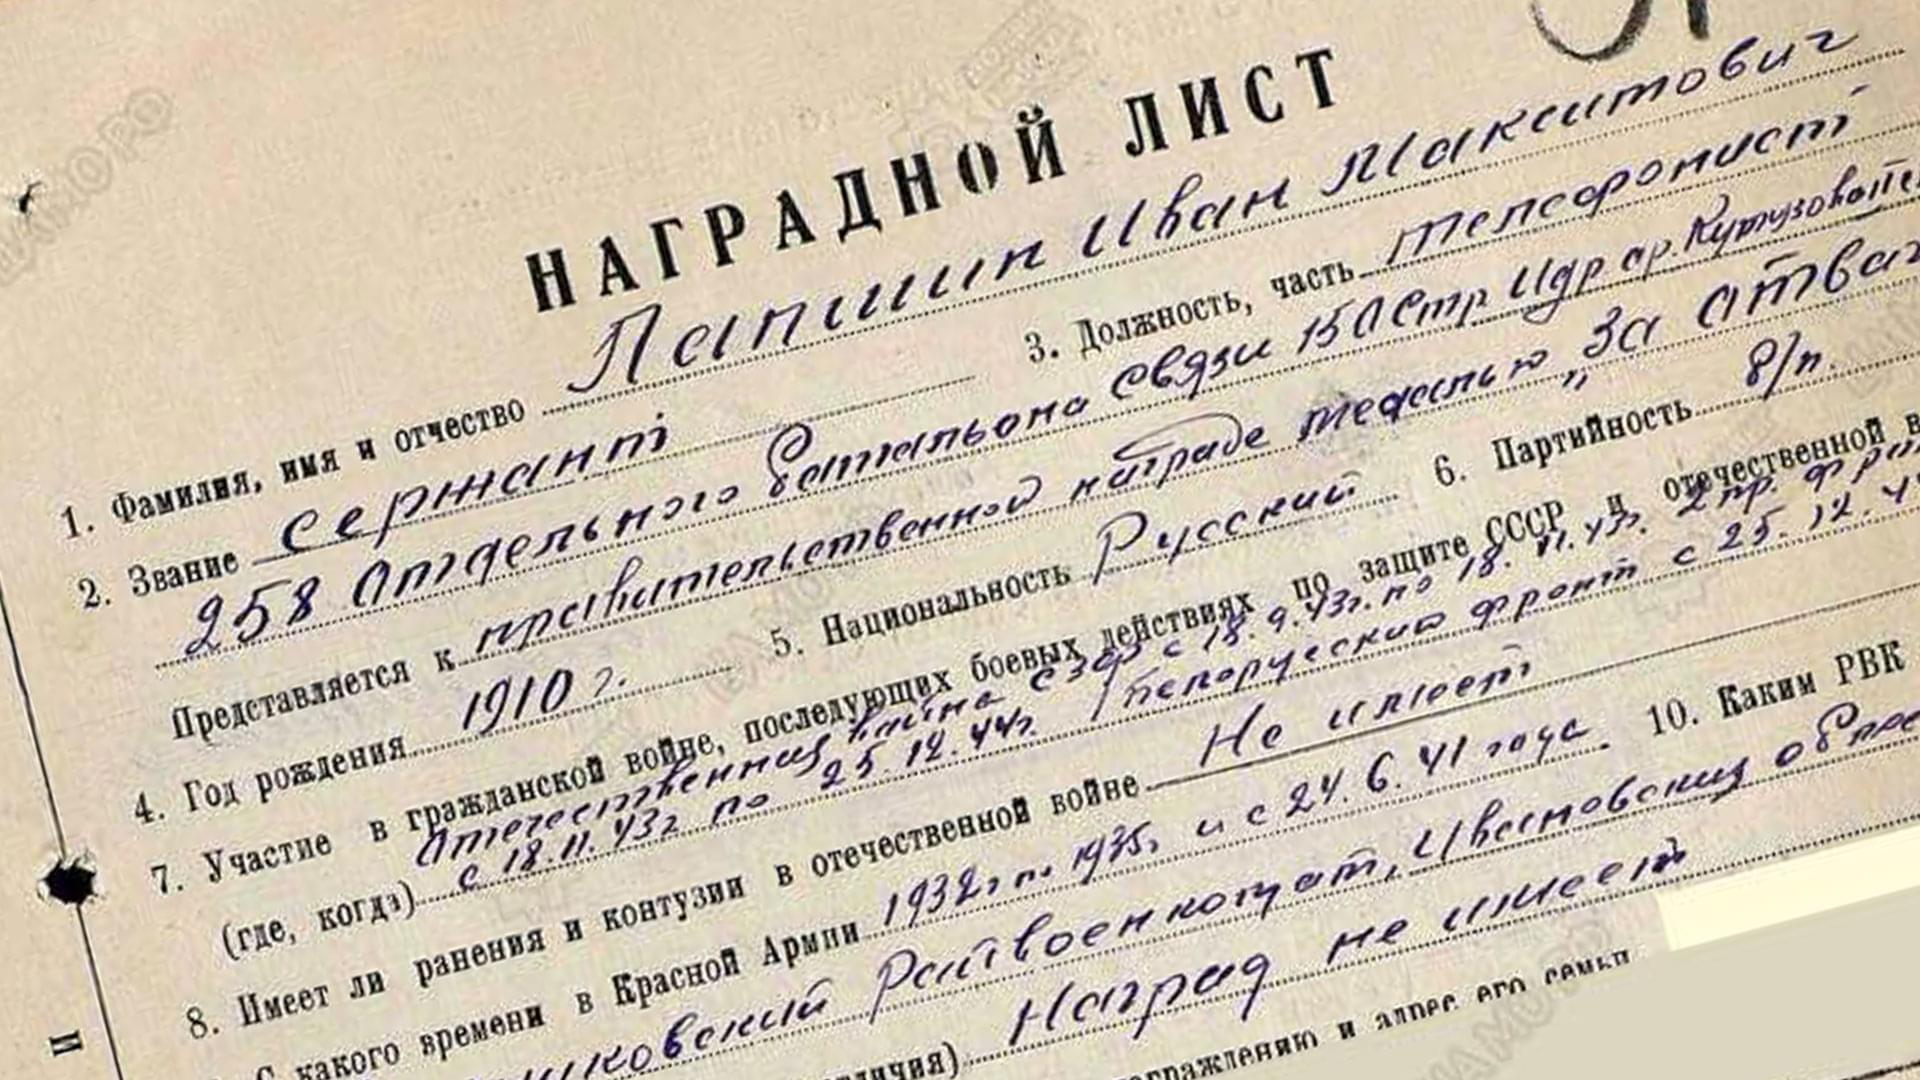 НАГРАДНОЙ ЛИСТ
1. Фамилия, имя и отчество Лапшин Иван Максимович
2. Звание сержант 3. Должность, часть телефонист
258 Отдельного батальона связи 150 стр Идр ор. Кутузова
Представляется к правительственной награде медалью „За отваг
4. Год рождения 1910 г. 5. Национальность Русский 6. Партийность б/п.
7. Участие в гражданской войне, последующих боевых действиях по защите СССР и отечественной в
Отечественная война СЗФ с 18.9.43г. по 18.11.43г. 2 пр. фрон
(где, когда) с 18.11.43г по 25.12.44г. 1 Белорусский фронт с 25.12.44
8. Имеет ли ранения и контузии в отечественной войне Не имеет
С какого времени в Красной Армии 1932г по 1935г и с 24.6.41 года 10. Каким РВК
Райвоенкомат, Ивановская
Наград не имеет
награждению и адрес его семьи